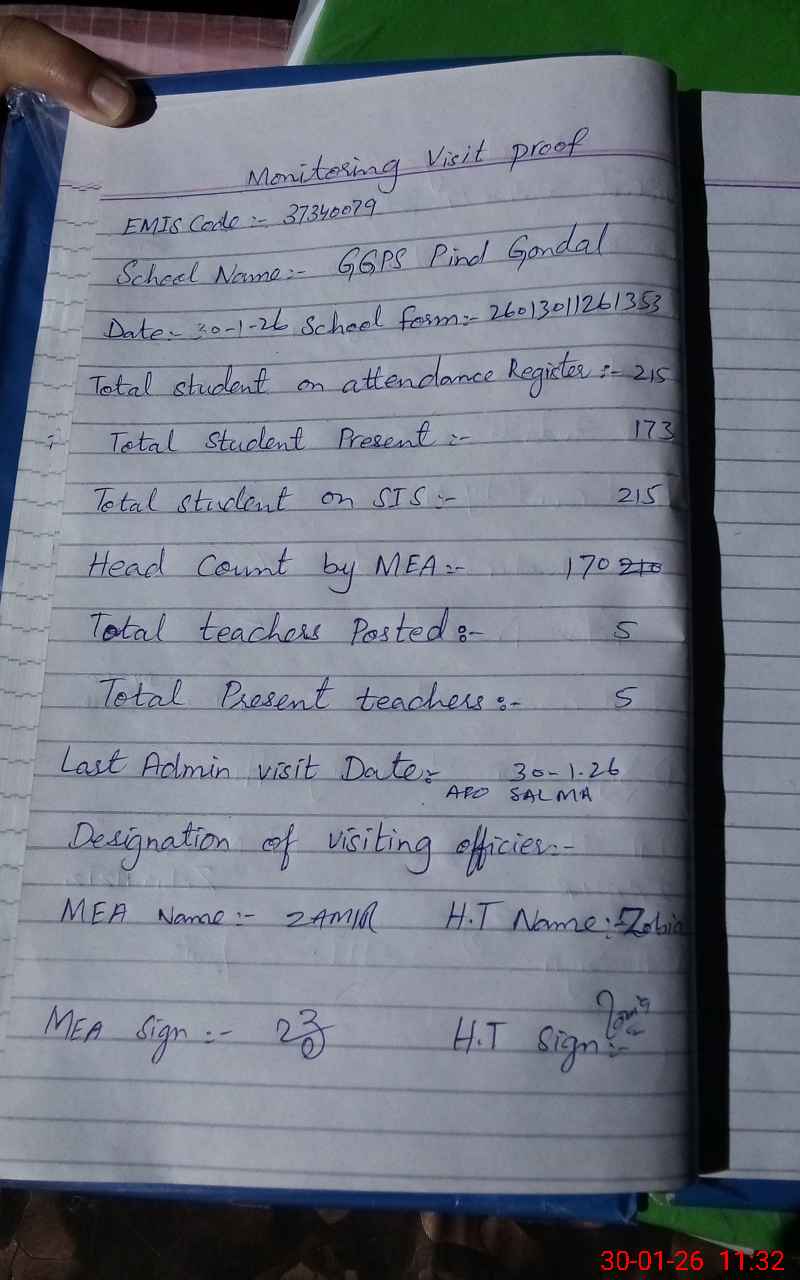 Monitoring Visit proof
EMIS Code :- 37340079
School Name:- GGPS Pind Gondal
Date:- 30-1-26 School form:- 26013011261353
Total student on attendance Register :- 215
Total Student Present :- 173
Total student on SIS :- 215
Head Count by MEA :- 170 210
Total teachers Posted :- 5
Total Present teachers :- 5
Last Admin visit Date:- 30-1.26
AEO SALMA
Designation of visiting officier:-
MEA Name :- ZAMIR H.T Name :- Zobia
MEA Sign :- H.T Sign :-
30-01-26 11:32